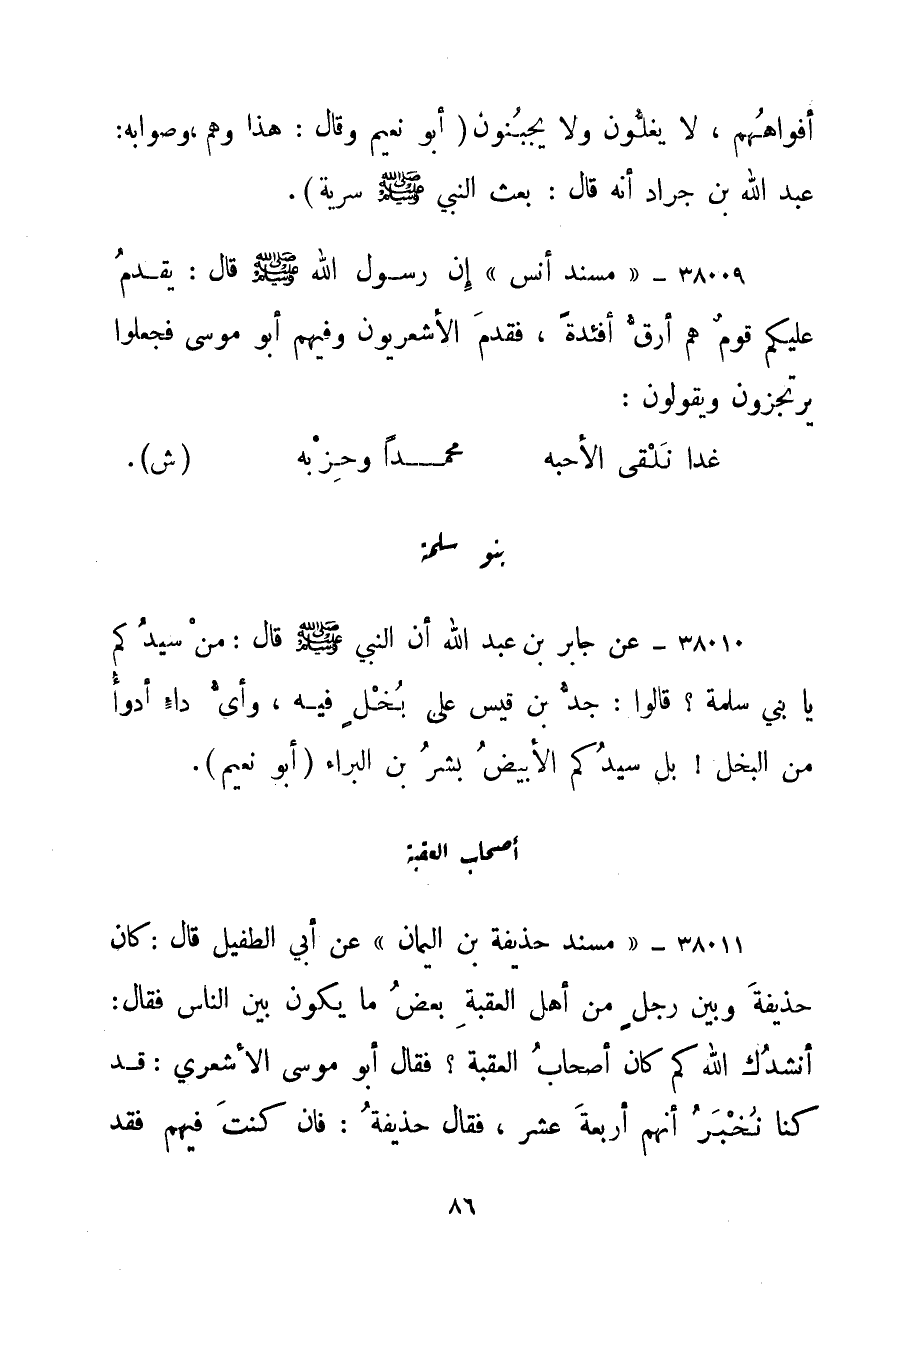 أفواهُهم ، لا يغلُّون ولا يجبُنون ( أبو نعيم وقال : هذا وهم ،وصوابه:
عبد الله بن جراد أنه قال : بعث النبي ﷺ سرية ) .
٣٨٠٠٩ ــ « مسند أنس » إن رسول الله ﷺ قال : يقدمُ
عليكم قومٌ هم أرقُّ أفئدةً ، فقدمَ الأشعريون وفيهم أبو موسى فجعلوا
يرتجزون ويقولون :
غدا نَلْقى الأحبه محمداً وحِزْبه (ش) .
بنو سلمة
٣٨٠١٠ ــ عن جابر بن عبد الله أن النبي ﷺ قال : منْ سيدُكم
يا بني سلمة ؟ قالوا : جدُّ بن قيس على بُخْلٍ فيه ، وأيُّ داءٍ أدوأُ
من البخل ! بل سيدُكم الأبيضُ بشرُ بن البراء ( أبو نعيم ) .
أصحاب العقبة
٣٨٠١١ ــ « مسند حذيفة بن اليمان » عن أبي الطفيل قال : كان
حذيفةَ وبين رجلٍ من أهل العقبةِ بعضُ ما يكون بين الناس فقال:
أنشدُك الله كم كان أصحابُ العقبة ؟ فقال أبو موسى الأشعري : قد
كنا نُخْبَرُ أنهم أربعةَ عشر ، فقال حذيفةُ : فان كنتَ فيهم فقد
٨٦